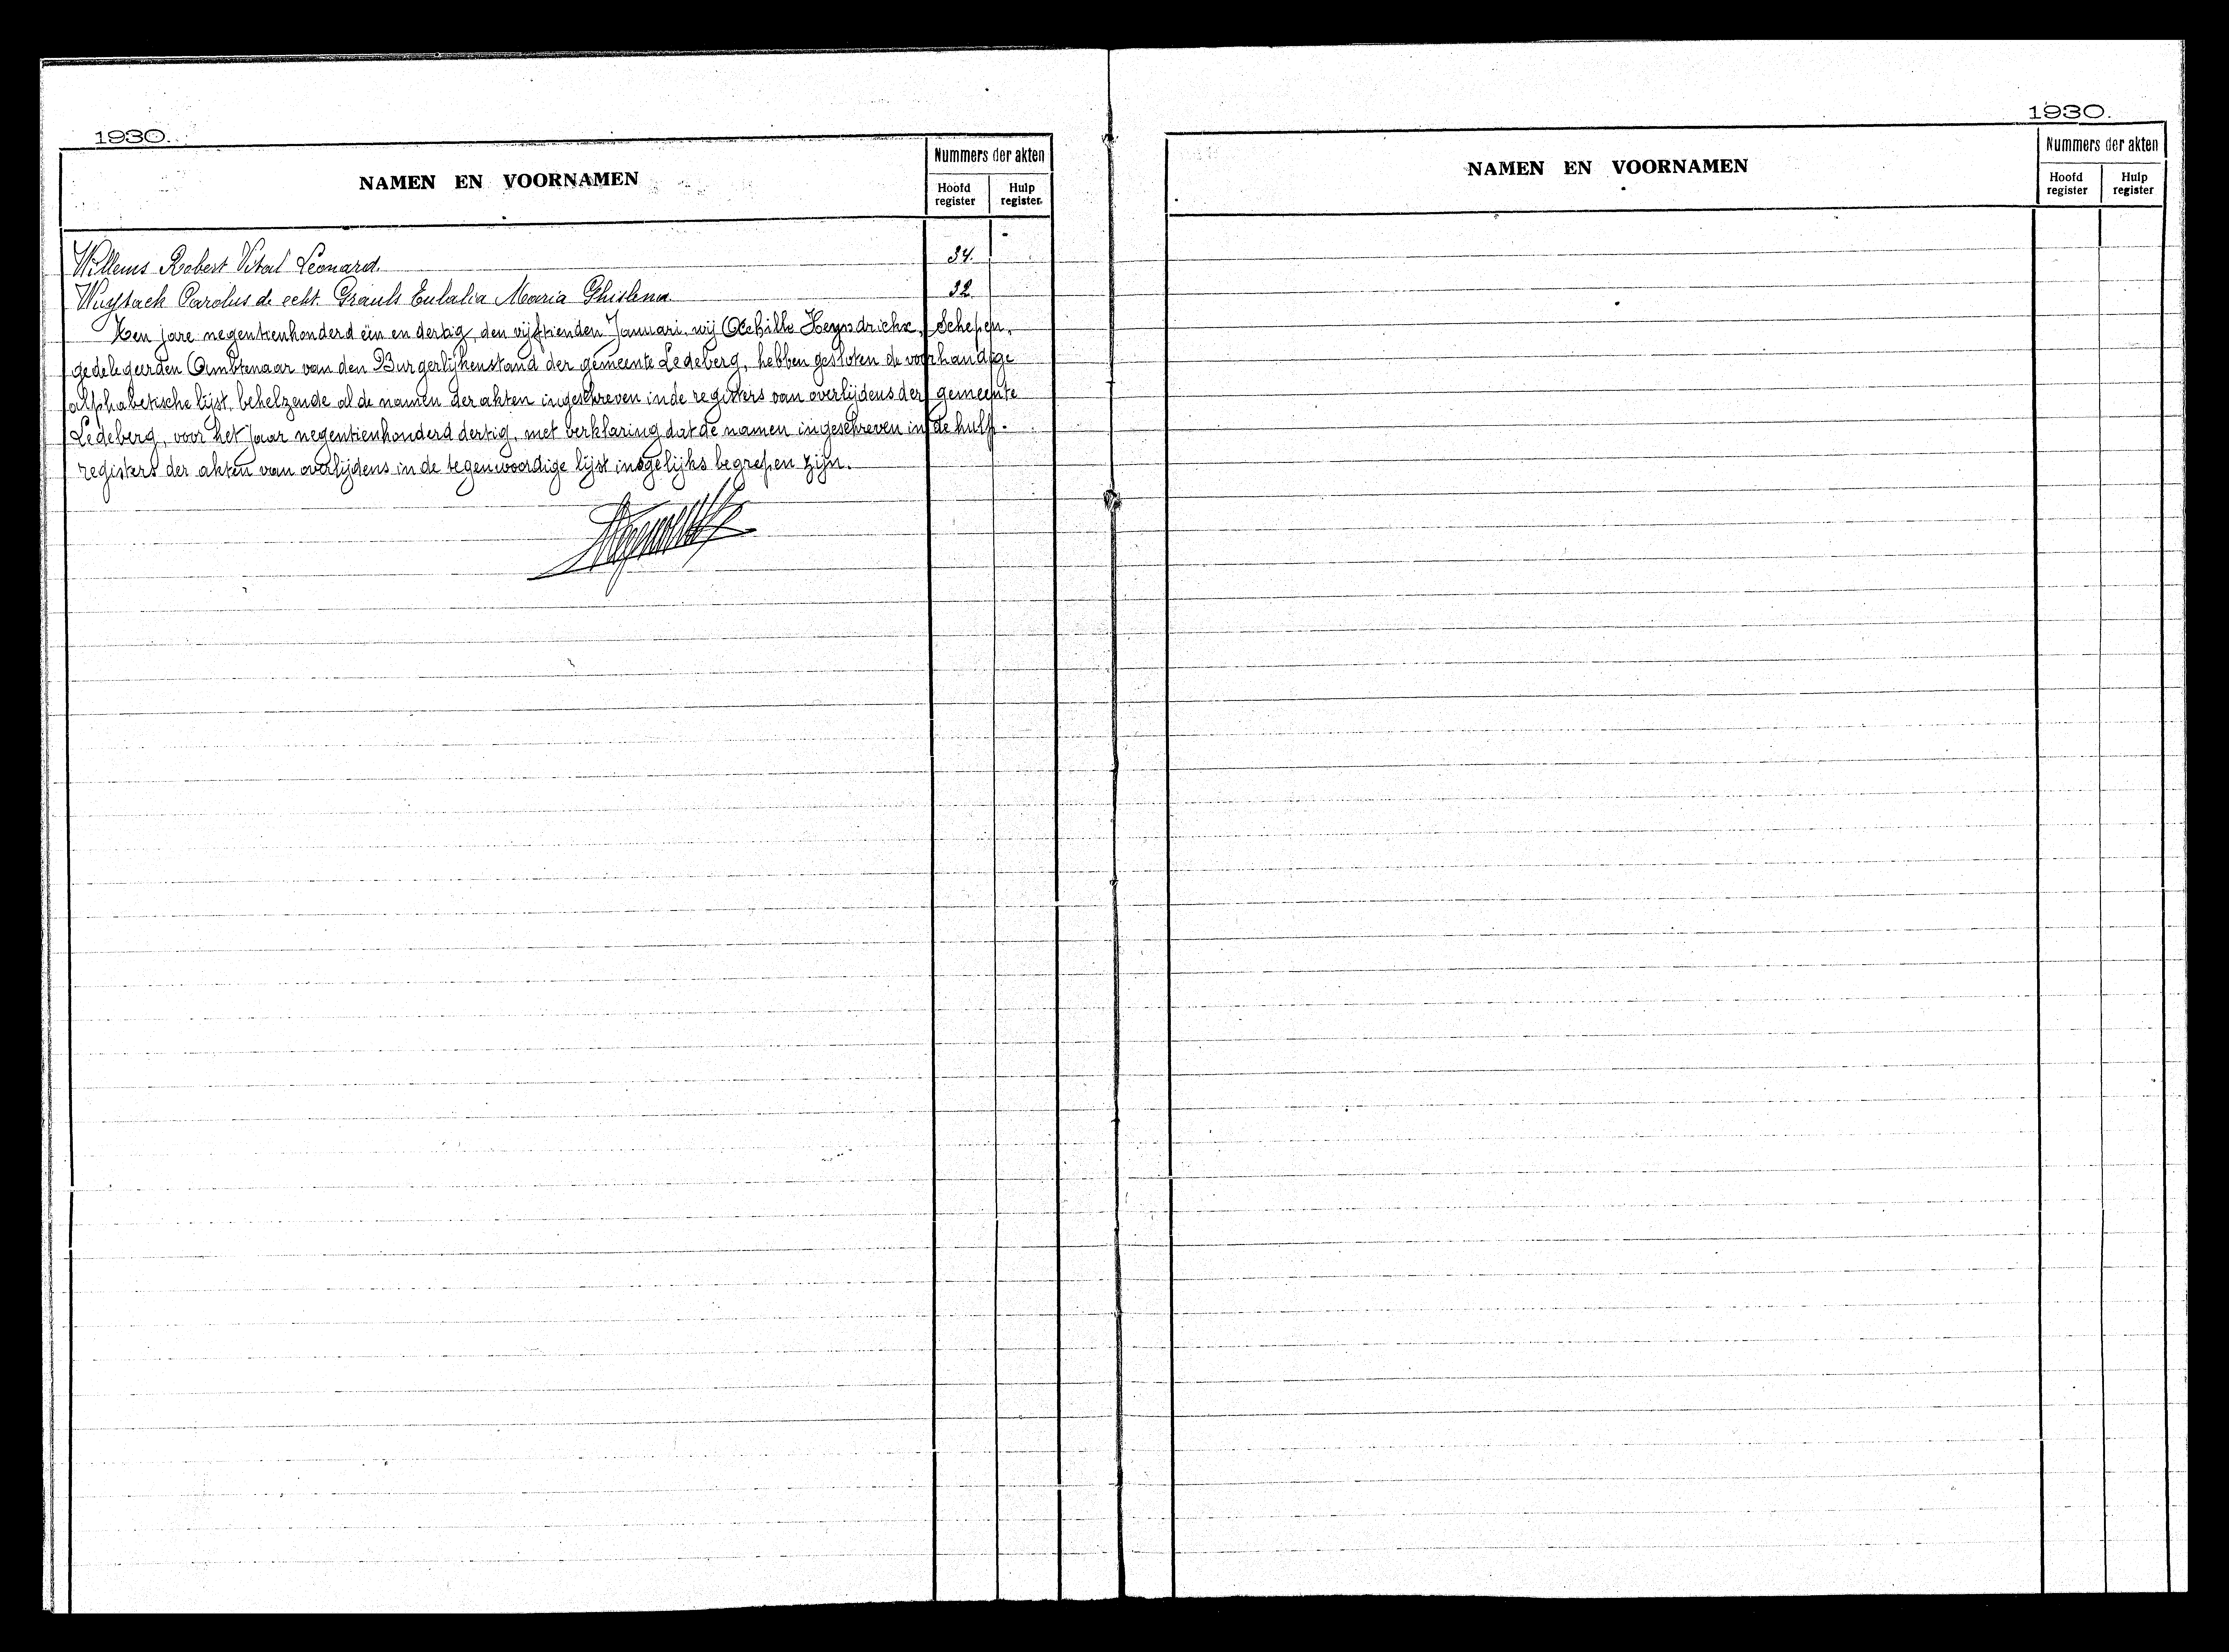 1930.
NAMEN EN VOORNAMEN
Nummers der akten
Hoofd register
Hulp register.
Willems Robert Vital Leonard. 34.
Wuytack Carolus de echt. Grauls Eulalia Maria Ghislena 32
Ten jare negentienhonderd een en dertig, den vijftienden Januari, wij Achille Heyndrickx, Schepen,
gedelegeerden Ambtenaar van den Burgerlijkenstand der gemeente Ledeberg, hebben gesloten de voorhandige
alphabetische lijst, behelzende al de namen der akten ingeschreven in de registers van overlijdens der gemeente
Ledeberg, voor het jaar negentienhonderd dertig, met verklaring dat de namen ingeschreven in de hulp-
registers der akten van overlijdens in de tegenwoordige lijst insgelijks begrepen zijn.
1930.
NAMEN EN VOORNAMEN
Nummers der akten
Hoofd register
Hulp register